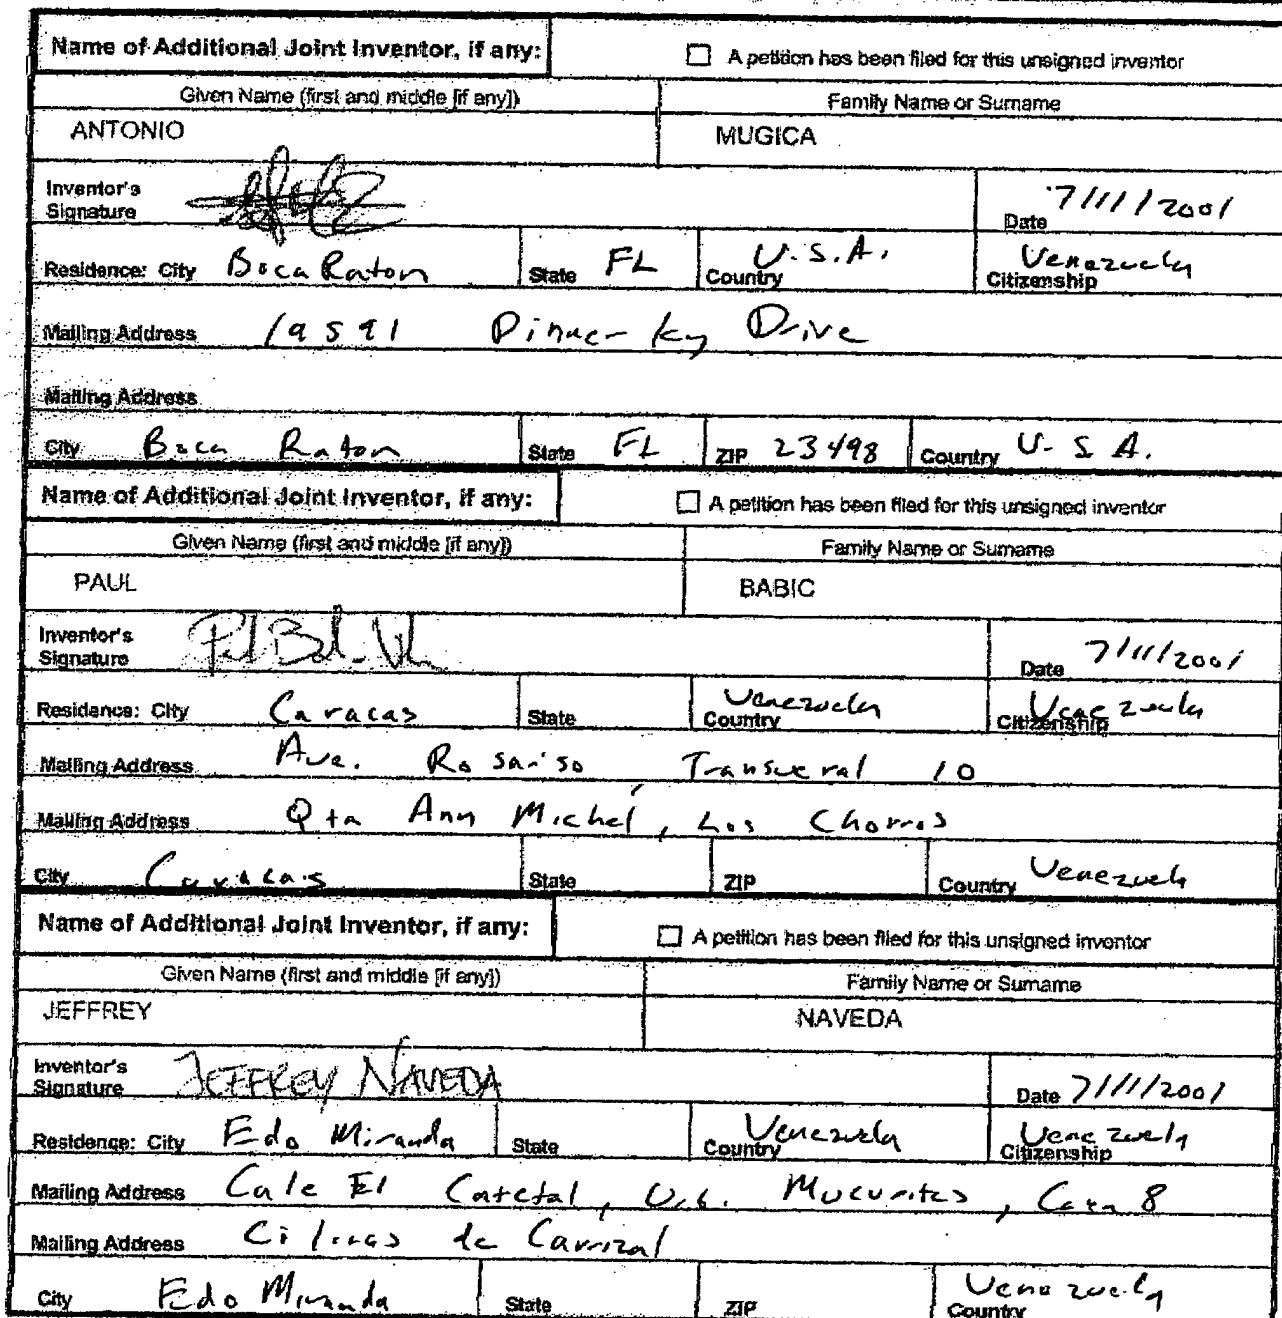 Name of Additional Joint Inventor, if any: ☐ A petition has been filed for this unsigned inventor
Given Name (first and middle [if any]) Family Name or Surname
ANTONIO MUGICA
Inventor's Signature Date 7/11/2001
Residence: City Boca Raton State FL Country U.S.A. Citizenship Venezuela
Mailing Address 19591 Dinner Key Drive
Mailing Address
City Boca Raton State FL ZIP 23498 Country U.S.A.
Name of Additional Joint Inventor, if any: ☐ A petition has been filed for this unsigned inventor
Given Name (first and middle [if any]) Family Name or Surname
PAUL BABIC
Inventor's Signature Date 7/11/2001
Residence: City Caracas State Country Venezuela Citizenship Venezuela
Mailing Address Ave. Rosariso Transveral 10
Mailing Address Qta Ann Michel, Los Chorros
City Caracas State ZIP Country Venezuela
Name of Additional Joint Inventor, if any: ☐ A petition has been filed for this unsigned inventor
Given Name (first and middle [if any]) Family Name or Surname
JEFFREY NAVEDA
Inventor's Signature JEFFREY NAVEDA Date 7/11/2001
Residence: City Edo Miranda State Country Venezuela Citizenship Venezuela
Mailing Address Cale El Cafetal, Urb. Mucuritas, Casa 8
Mailing Address de Carrizal
City Edo Miranda State ZIP Country Venezuela